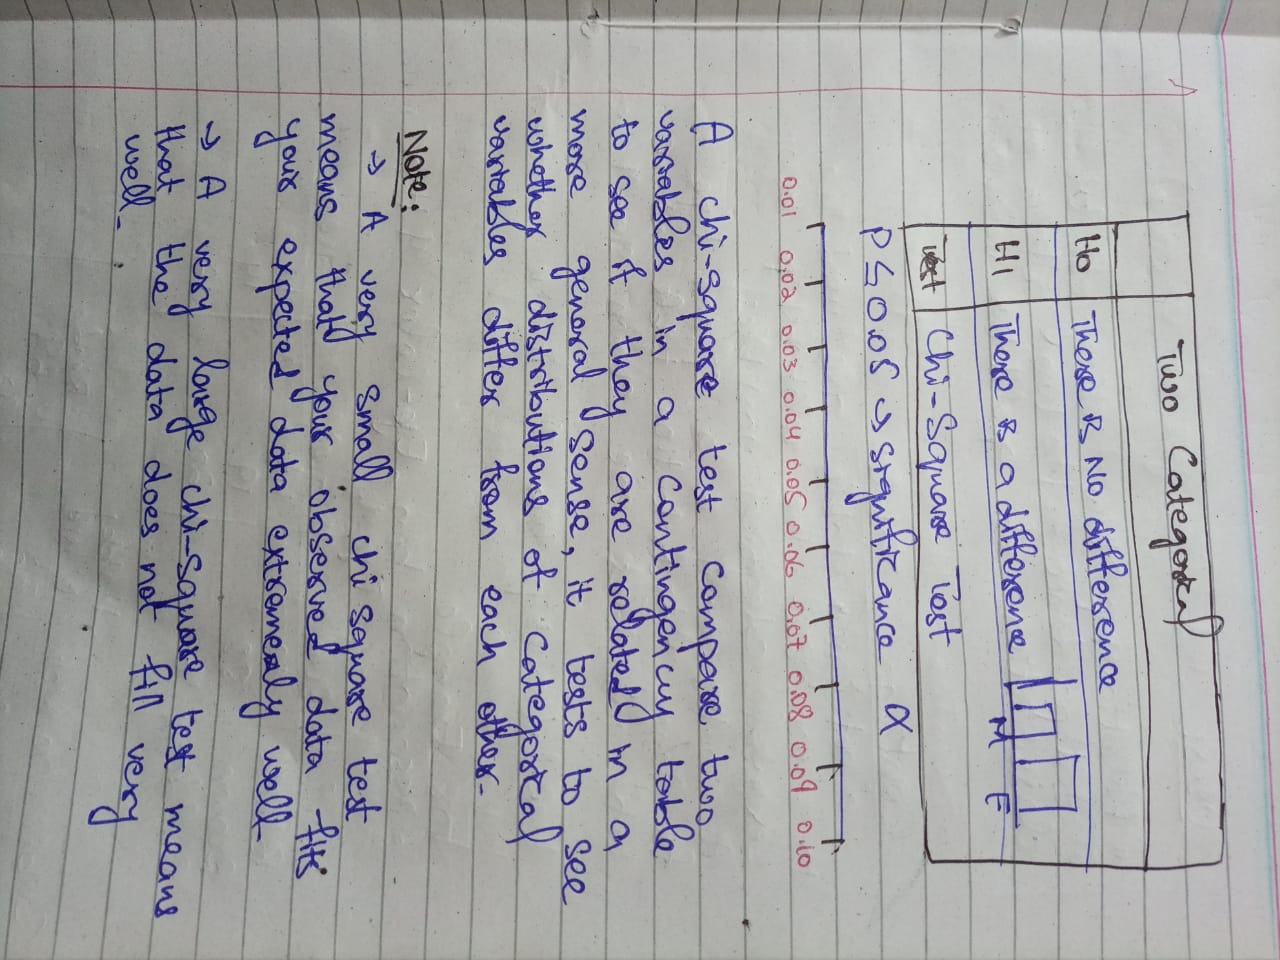 Two Categorical
Ho There is No difference
H1 There is a difference
M F
Test Chi-Square Test
P ≤ 0.05 → significance α
0.01 0.02 0.03 0.04 0.05 0.06 0.07 0.08 0.09 0.10
A chi-square test compare two
variables in a contingency table
to see if they are related in a
more general sense, it tests to see
whether distributions of categorical
variables differ from each other-
Note:
→ A very small chi square test
means that your observed data fits
your expected data extremenly well
→ A very large chi-square test means
that the data does not fill very
well-